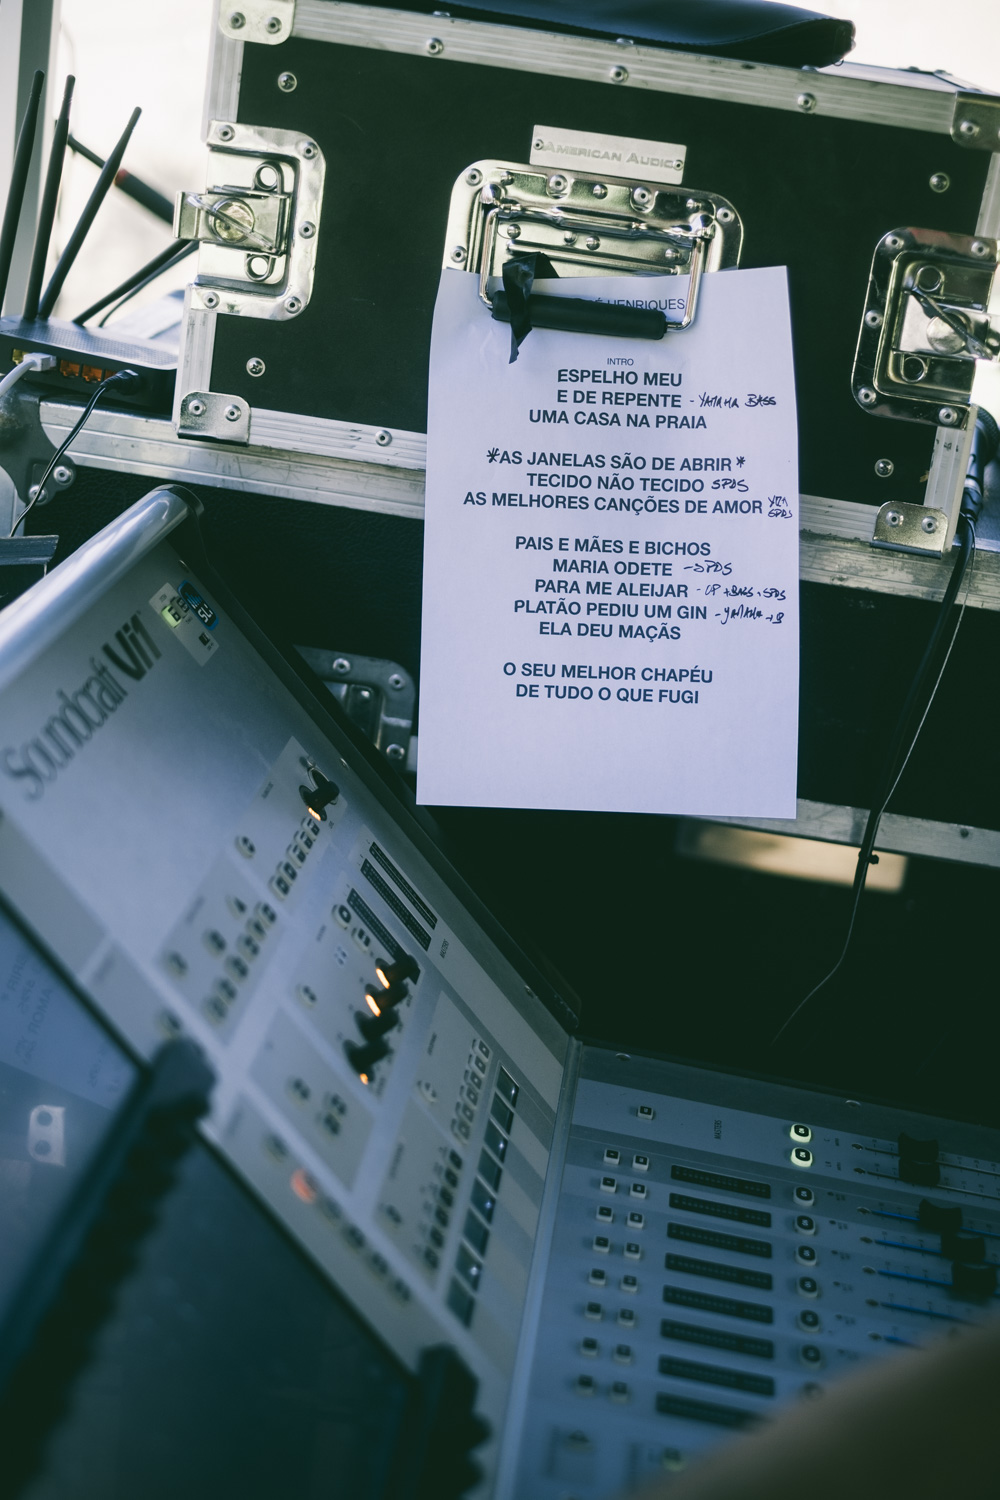 AMERICAN AUDIO
HENRIQUES
INTRO
ESPELHO MEU
E DE REPENTE - YAMAHA BASS
UMA CASA NA PRAIA
*AS JANELAS SÃO DE ABRIR*
TECIDO NÃO TECIDO SPDS
AS MELHORES CANÇÕES DE AMOR SPDS
PAIS E MÃES E BICHOS
MARIA ODETE - SPDS
PARA ME ALEIJAR - UP + BASS + SPDS
PLATÃO PEDIU UM GIN - YAMAHA + B
ELA DEU MAÇÃS
O SEU MELHOR CHAPÉU
DE TUDO O QUE FUGI
Soundcraft Vi1